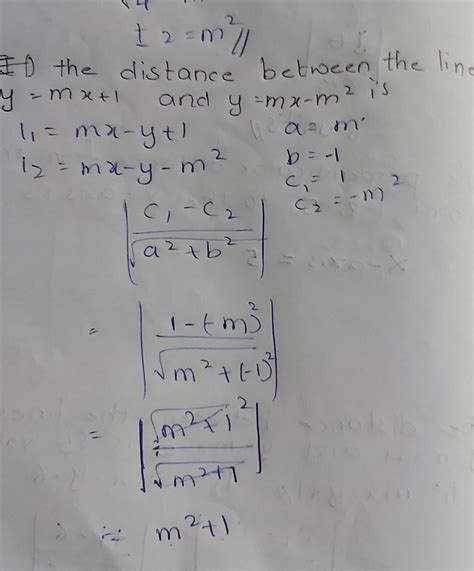 ± 2 = m² //
II) the distance between the line
y = mx+1 and y = mx-m² is
l₁ = mx-y+1 a = m
l₂ = mx-y-m² b = -1
c₁ = 1
c₂ = -m²
| c₁ - c₂ / √a² + b² |
= | 1-(-m)² / √m² + (-1)² |
= | √m²+1² / √m²+1 |
∴ m²+1